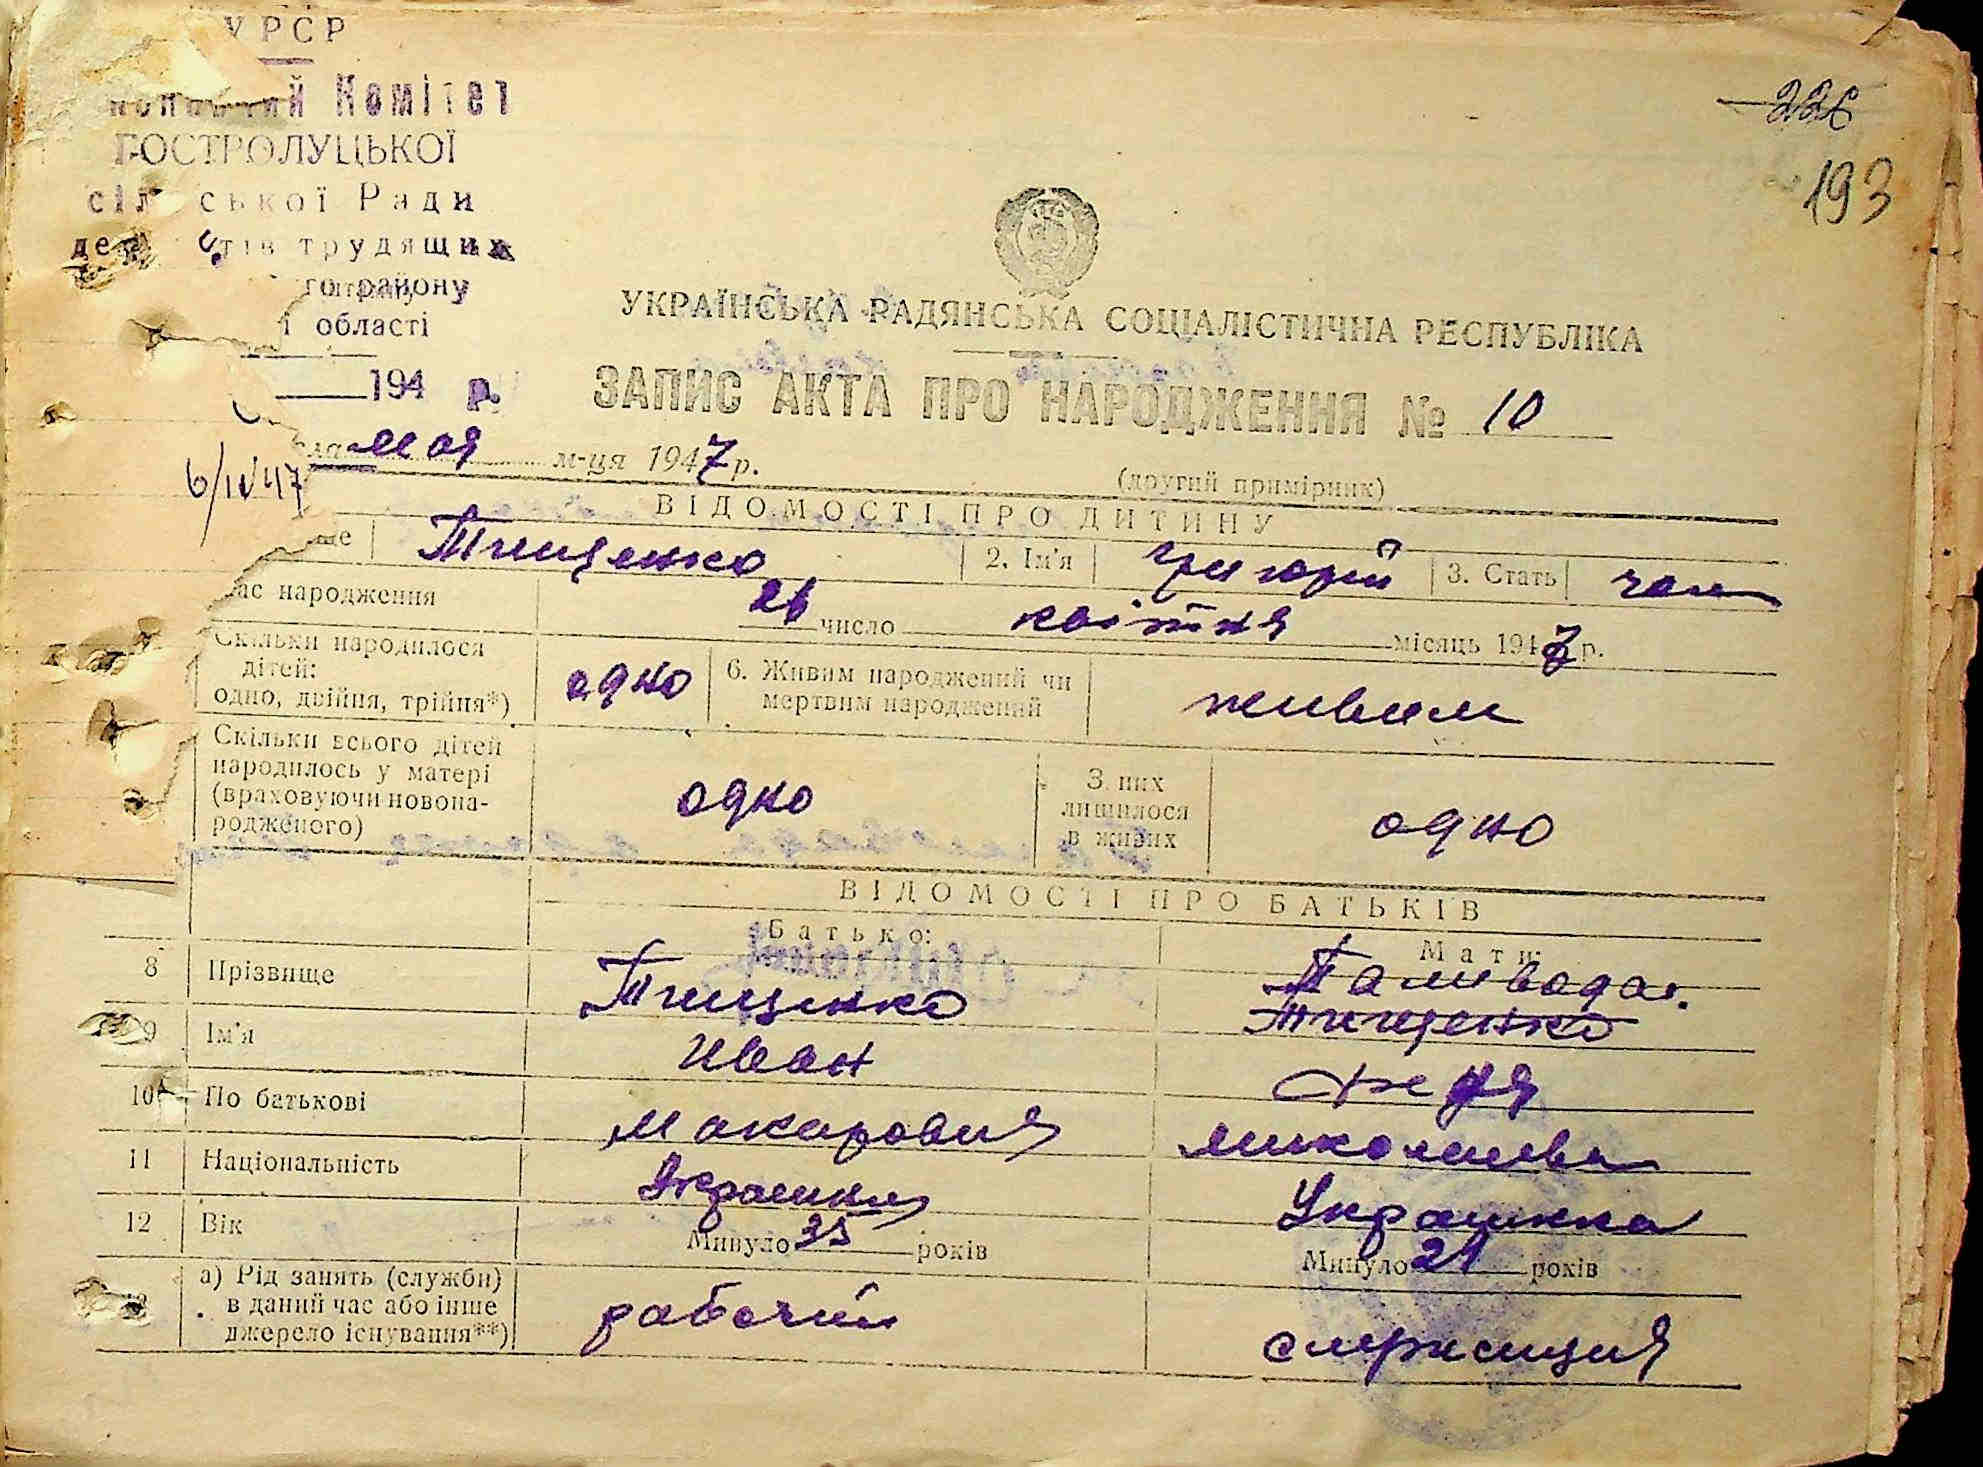 УРСР
Комітет
ГОСТРОЛУЦЬКОЇ
сільської Ради
депутатів трудящих
го району
області
194 р.
226
193
УКРАЇНСЬКА РАДЯНСЬКА СОЦІАЛІСТИЧНА РЕСПУБЛІКА
ЗАПИС АКТА ПРО НАРОДЖЕННЯ № 10
мая м-ця 1947 р.
(другий примірник)
ВІДОМОСТІ ПРО ДИТИНУ
Тищенко 2. Ім'я Григорій 3. Стать чол
час народження 26 число квітня місяць 1947 р.
Скільки народилося
дітей:
одно, двійня, трійня*) одно 6. Живим народжений чи
мертвим народжений живим
Скільки всього дітей
народилось у матері
(враховуючи новона-
родженого) одно З них
лишилося
в живих одно
ВІДОМОСТІ ПРО БАТЬКІВ
Батько: Мати:
8 Прізвище Тищенко Паливода.
Тищенко
9 Ім'я Иван
10 По батькові Макарович Миколаивна
11 Національність Українец Українка
12 Вік Минуло 35 років Минуло 21 років
а) Рід занять (служби)
в даний час або інше
джерело існування**) рабочий